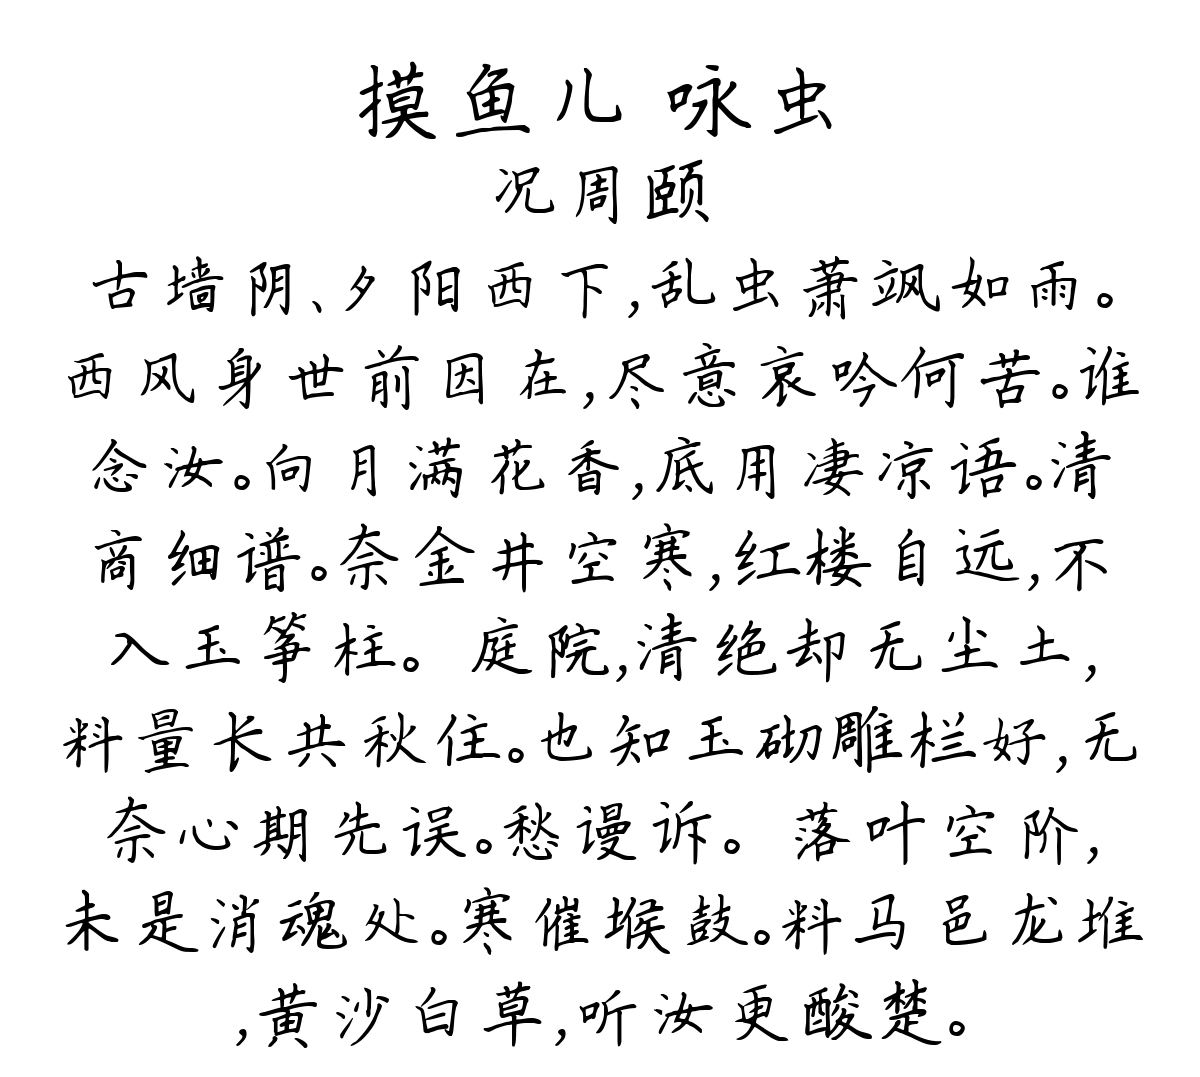 摸鱼儿 咏虫
况周颐
古墙阴、夕阳西下,乱虫萧飒如雨。
西风身世前因在,尽意哀吟何苦。谁
念汝。向月满花香,底用凄凉语。清
商细谱。奈金井空寒,红楼自远,不
入玉筝柱。 庭院,清绝却无尘土,
料量长共秋住。也知玉砌雕栏好,无
奈心期先误。愁谩诉。 落叶空阶,
未是消魂处。寒催堠鼓。料马邑龙堆
,黄沙白草,听汝更酸楚。